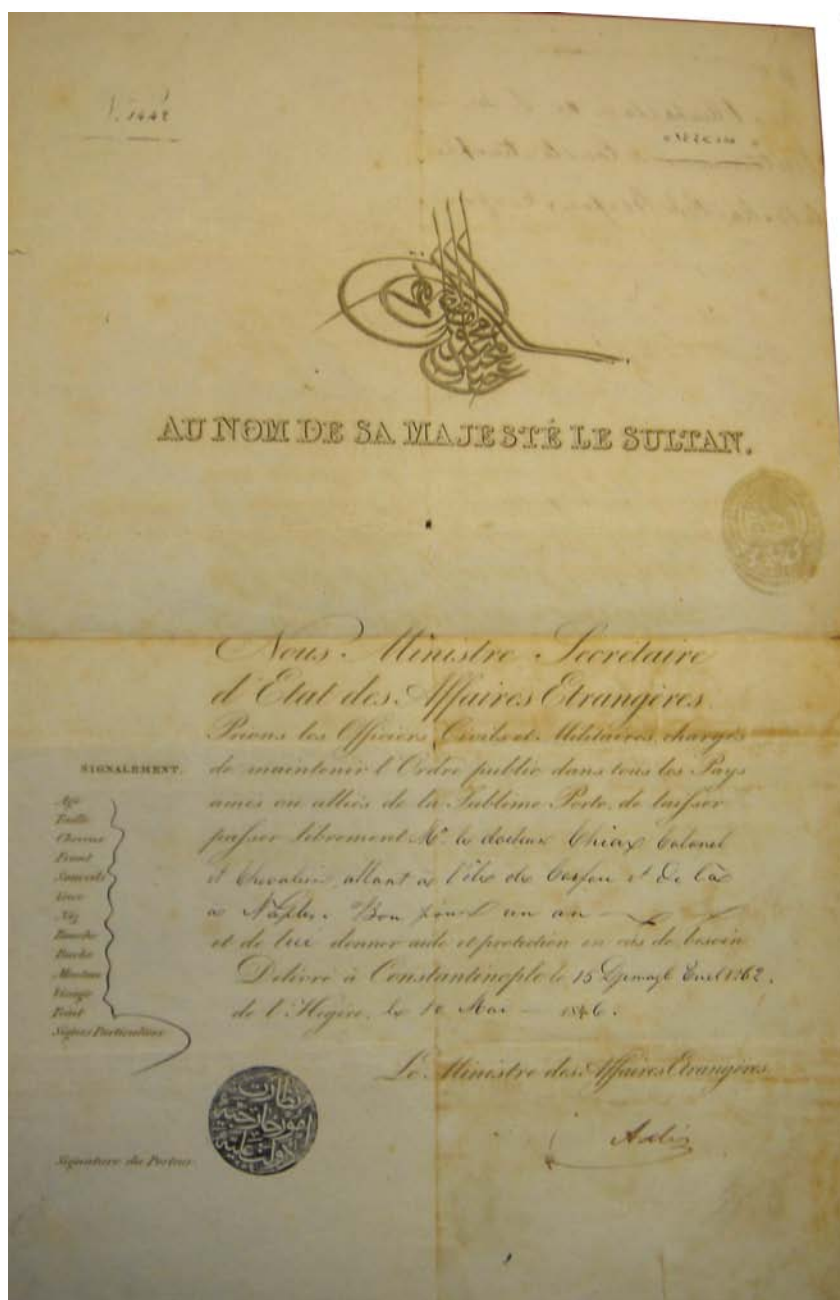 AU NOM DE SA MAJESTÉ LE SULTAN.
Nous Ministre Secrétaire
d'Etat des Affaires Etrangères
Prions les Officiers Civils et Militaires chargés
de maintenir l'Ordre public dans tous les Pays
amis ou alliés de la Sublime Porte, de laisser
passer librement Mr le docteur Colonel
et Chevalier allant a l'île de Corfou et de là
a Naples. Bon pour un an
et de lui donner aide et protection en cas de besoin
Délivré à Constantinople le 15 1262.
de l'Hégire, le Mai 1846.
Le Ministre des Affaires Etrangères
SIGNALEMENT.
Age
Taille
Cheveux
Front
Sourcils
Yeux
Nez
Bouche
Barbe
Menton
Visage
Teint
Signes Particuliers
نظارت
امور خارجية
Signature du Porteur